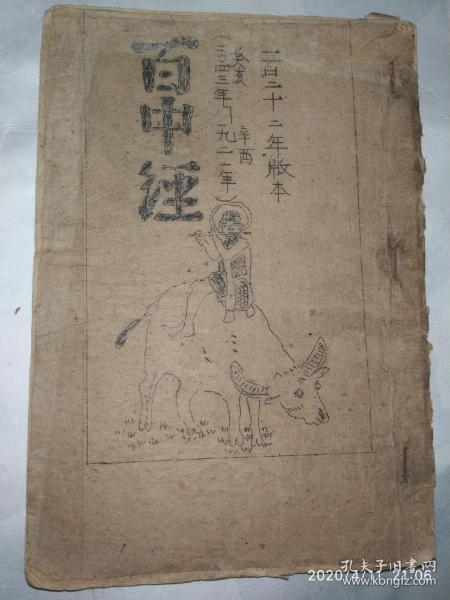 百中径
一百二十二年版本
癸亥 辛酉
(二〇四三年～一九二一年)
孔夫子旧书网
2020/4/11 21:06